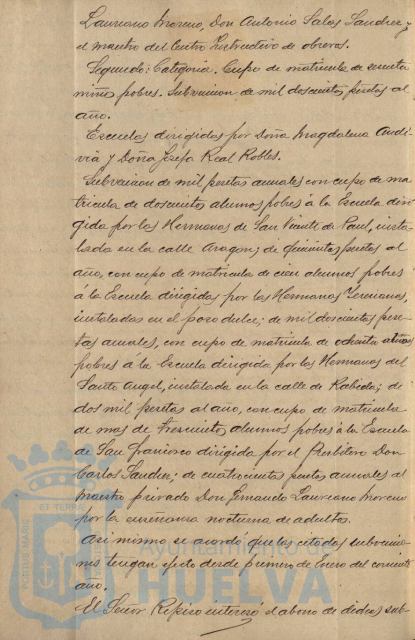 Laureano Moreno, Don Antonio Salas Sanchez y
el maestro del Centro Instructivo de obreros.
Segundo: Categoria. Cupo de matricula de sesenta
niños pobres. Subvencion de mil doscientas pesetas al
año.
Escuelas dirigidas por Doña Magdalena Andi-
via y Doña Josefa Real Robles.
Subvencion de mil pesetas anuales con cupo de ma-
tricula de doscientos alumnos pobres á la Escuela diri-
gida por las Hermanas de San Vicente de Paul, insta-
lada en la calle Aragon; de quinientas pesetas al
año, con cupo de matricula de cien alumnos pobres
á la Escuela dirigidas por las Hermanas
instaladas en el pozo dulce; de mil doscientas pese-
tas anuales, con cupo de matricula de ochenta
pobres á la Escuela dirigida por las Hermanas del
Santo Angel, instalada en la calle de Rabida; de
dos mil pesetas al año, con cupo de matricula
de mas de trescientos alumnos pobres á la Escuela
de San Francisco dirigida por el Presbitero Don
Carlos Sanchez; de cuatrocientas pesetas anuales al
Maestro privado Don Fernando Laureano Moreno
por la enseñanza nocturna de adultos.
Asi mismo se acordó que las citadas subvencio-
nes tengan efecto desde primero de Enero del corriente
año.
El Señor interesó el abono de dichas sub-
PORTUS MARIS
ET TERRÆ
Ayuntamiento de
HUELVA